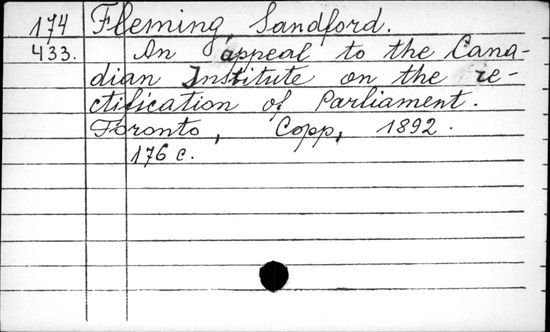 174 Fleming, Sandford.
433. An appeal to the Cana-
dian Institute on the re-
ctification of Parliament.
Toronto, Copp, 1892.
176 c.